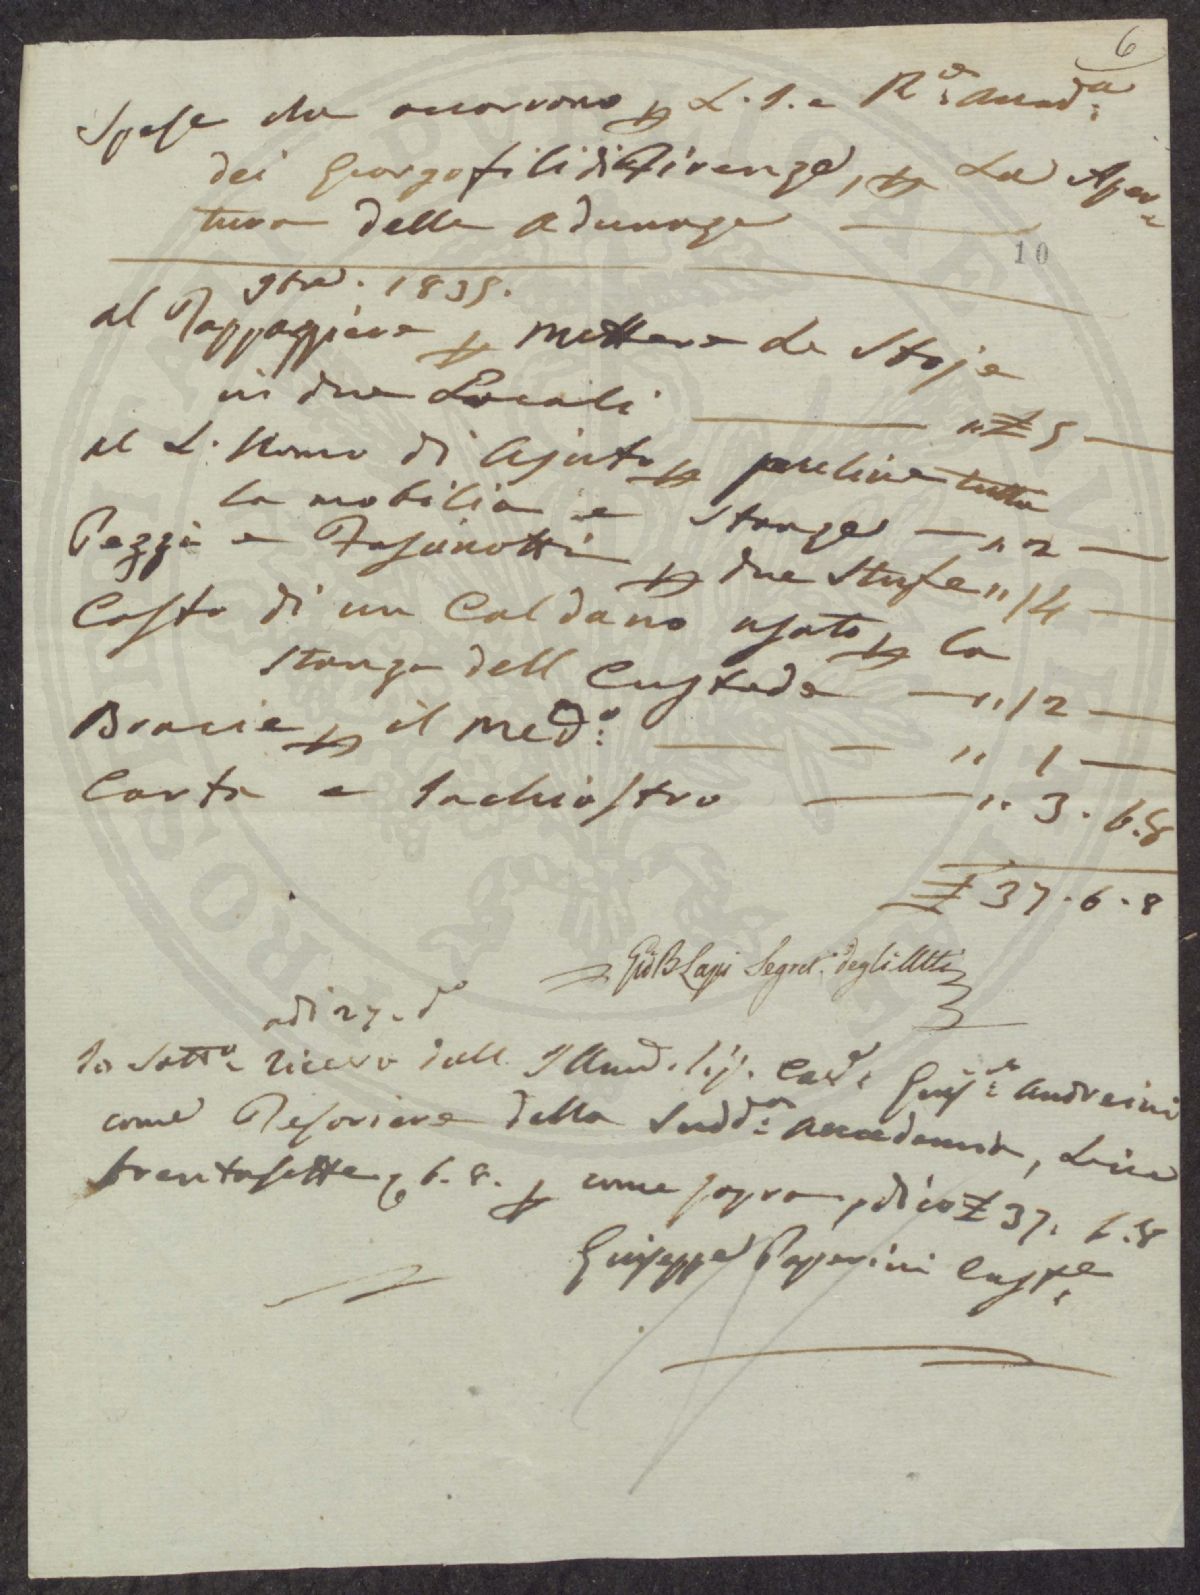 6
Spese che occorrono p L. I. e Rle: Accad:a
dei Georgofili di Firenze, p La Aper=
tura delle Adunanze
10
9bre. 1835.
al Tappezziere p mettere Le Stoje
in due Locali " £ 5 —
al L. Uomo di Ajuto p pulire tutta
la mobilia e Stanze — " 2 —
Pezzi e Fascinotti p due Stufe " 14 —
Costo di un Caldano usato p la
Stanza dell Custode — " 12 —
Bracie p il Med:o — " 1 —
Carta e Inchiostro — " 3. 6. 8
£ 37. 6. 8
Gio B Lapi Segret. degli Atti
adi 27. do
Io Sotto: ricevo dall Cav: Giuse: Andreini
come Tesoriere della Sudda: Accademia, Lire
trentasette e 6. 8. p come sopra, dico £ 37. 6. 8
Giuseppe Paperini Custe: